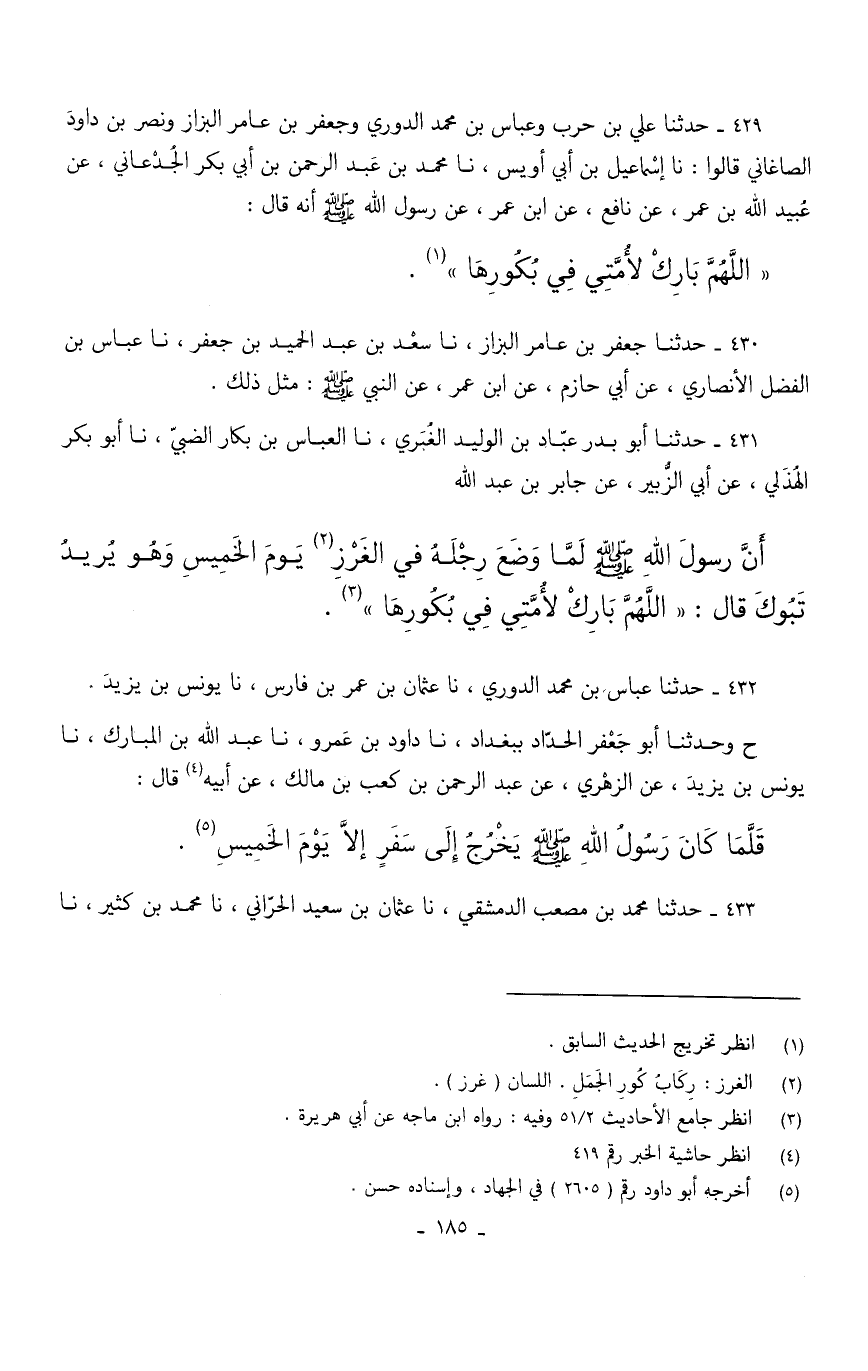 ٤٢٩ ـ حدثنا علي بن حرب وعباس بن محمد الدوري وجعفر بن عامر البزاز ونصر بن داودَ
الصاغاني قالوا : نا إسْماعيل بن أبي أويس ، نا محمد بن عَبد الرحمن بن أبي بكر الجُدْعاني ، عن
عُبيد الله بن عمر ، عن نافع ، عن ابن عمر ، عن رسول الله ﷺ أنه قال :
« اللَّهُمَّ بَارِكْ لأُمَّتِي فِي بُكُورِهَا »(١) .
٤٣٠ ـ حدثنا جعفر بن عامر البزاز ، نا سعْد بن عبد الحميد بن جعفر ، نا عباس بن
الفضل الأنصاري ، عن أبي حازم ، عن ابن عمر ، عن النبي ﷺ : مثل ذلك .
٤٣١ ـ حدثنا أبو بدر عبّاد بن الوليد الغُبَري ، نا العباس بن بكار الضبيّ ، نا أبو بكر
الهُذَلي ، عن أبي الزُّبير ، عن جابر بن عبد الله
أَنَّ رسولَ اللهِ ﷺ لَمَّا وَضَعَ رِجْلَهُ في الغَرْزِ(٢) يَومَ الخَمِيسِ وَهُو يُريدُ
تَبُوكَ قال : « اللَّهُمَّ بَارِكْ لأُمَّتِي فِي بُكُورِهَا »(٣) .
٤٣٢ ـ حدثنا عباس بن محمد الدوري ، نا عثمان بن عمر بن فارس ، نا يونس بن يزيدَ .
ح وحدثنا أبو جَعْفر الحدّاد ببغداد ، نا داود بن عَمرو ، نا عبد الله بن المبارك ، نا
يونس بن يزيدَ ، عن الزهْري ، عن عبد الرحمن بن كعب بن مالك ، عن أبيه(٤) قال :
قَلَّمَا كَانَ رَسُولُ اللهِ ﷺ يَخْرُجُ إِلَى سَفَرٍ إلاَّ يَوْمَ الخَمِيسِ(٥) .
٤٣٣ ـ حدثنا محمد بن مصعب الدمشقي ، نا عثمان بن سعيد الحرّاني ، نا محمد بن كثير ، نا
(١) انظر تخريج الحديث السابق .
(٢) الغرز : رِكَابُ كُورِ الجَمَلِ . اللسان ( غرز ) .
(٣) انظر جامع الأحاديث ٥١/٢ وفيه : رواه ابن ماجه عن أبي هريرة .
(٤) انظر حاشية الخبر رقم ٤١٩
(٥) أخرجه أبو داود رقم ( ٢٦٠٥ ) في الجهاد ، وإسناده حسن .
ـ ١٨٥ ـ